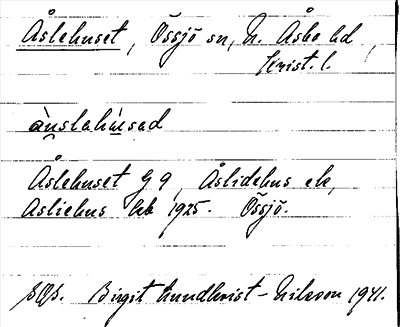 Åslehuset, Össjö sn, N. Åsbo hd,
Krist. l.
àuslahùsəd
Åslehuset G 9, Åslidehus ek,
Asliehus kb 1925. Össjö.
Birgit Lundkvist-Nilsson 1941.